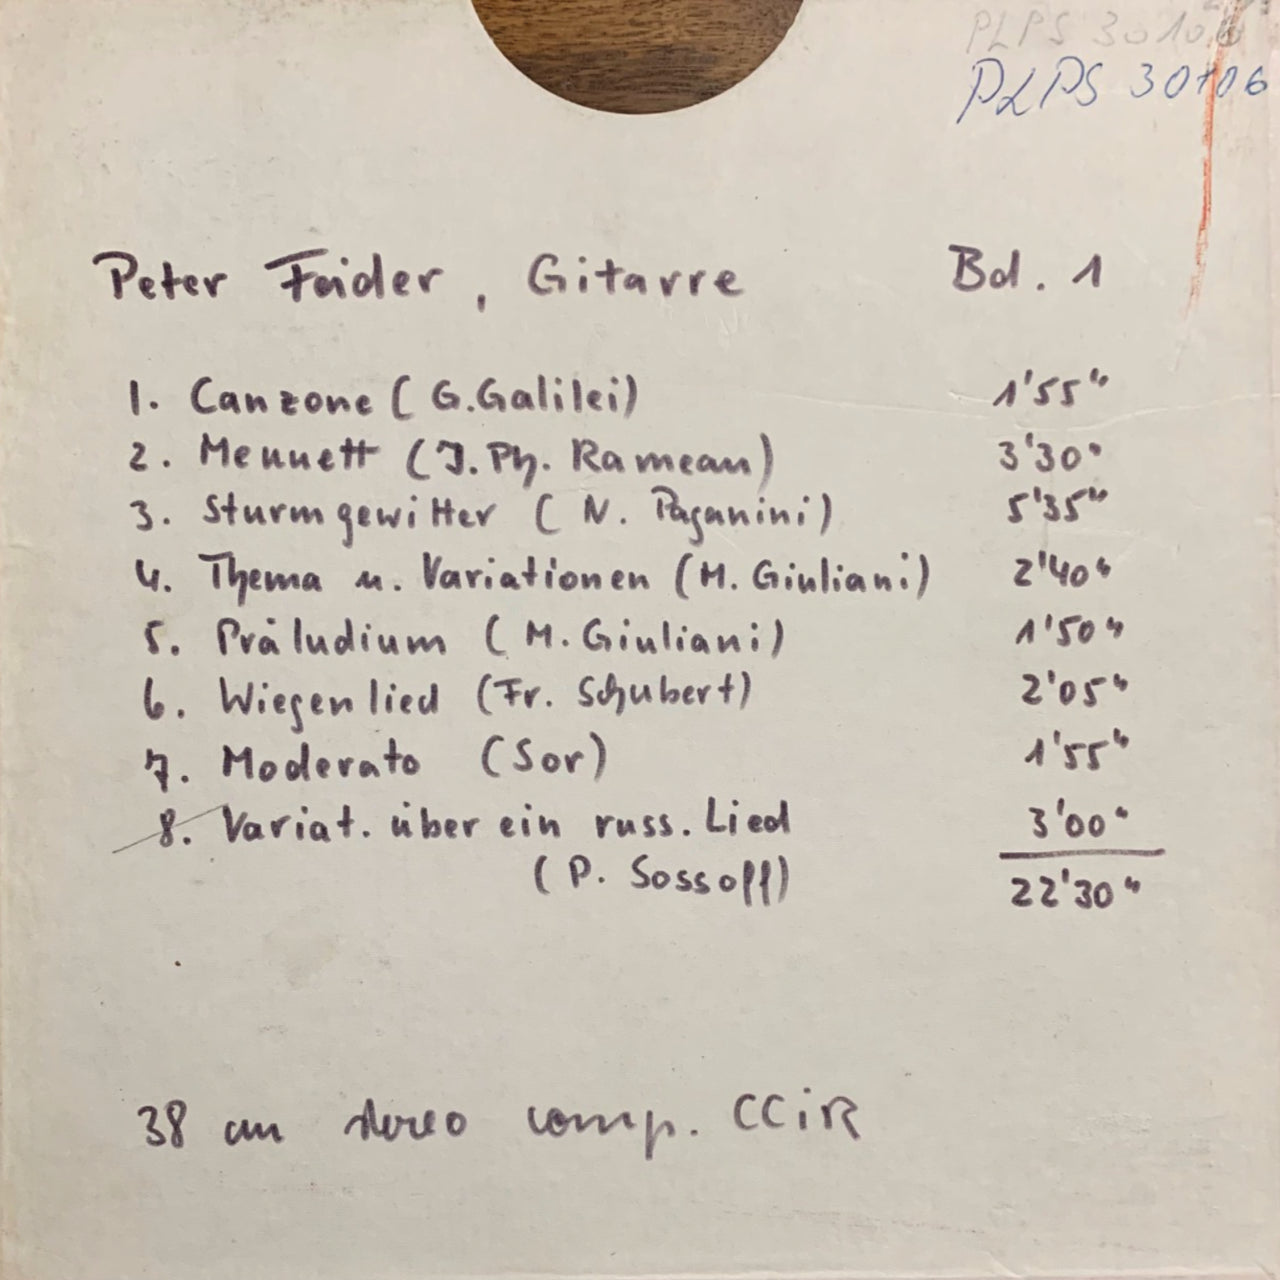 PLPS 30106
PLPS 30106
Peter Faider, Gitarre Bd. 1
1. Canzone (G. Galilei) 1'55"
2. Menuett (J. Ph. Rameau) 3'30"
3. Sturmgewitter (N. Paganini) 5'35"
4. Thema u. Variationen (M. Giuliani) 2'40"
5. Präludium (M. Giuliani) 1'50"
6. Wiegenlied (Fr. Schubert) 2'05"
7. Moderato (Sor) 1'55"
8. Variat. über ein russ. Lied 3'00"
(P. Sossoff) 22'30"
38 cm stereo comp. CCiR